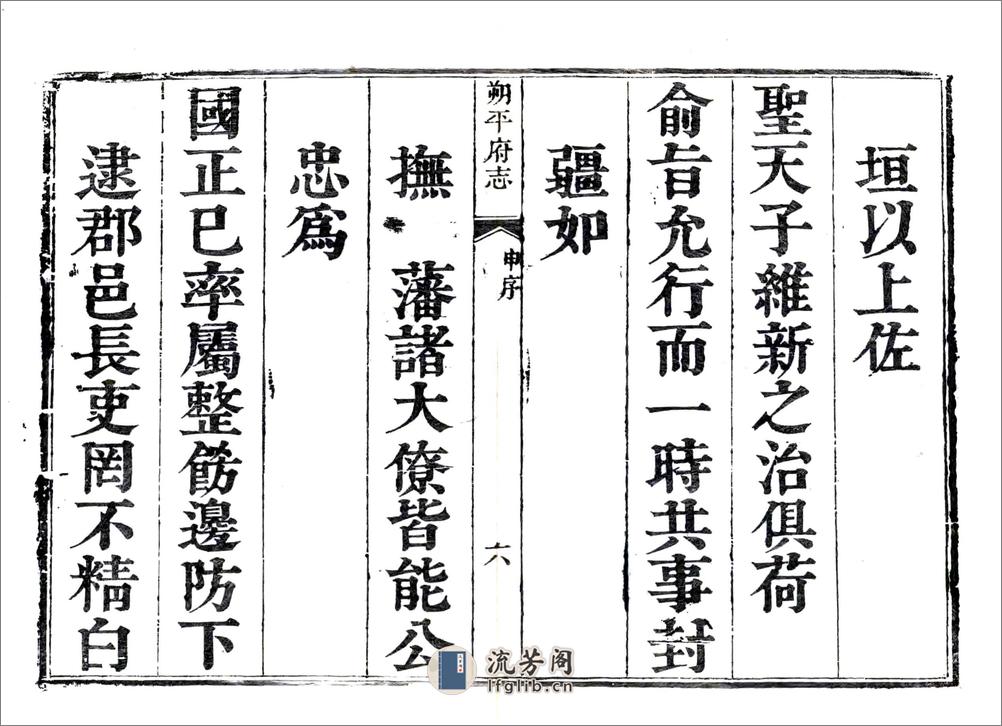 垣以上佐
聖天子維新之治俱荷
俞旨允行而一時共事封
疆如
朔平府志
申序
六
撫 藩諸大僚皆能公
忠爲
國正已率屬整飭邊防下
逮郡邑長吏罔不精白
流芳阁
lfglib.cn